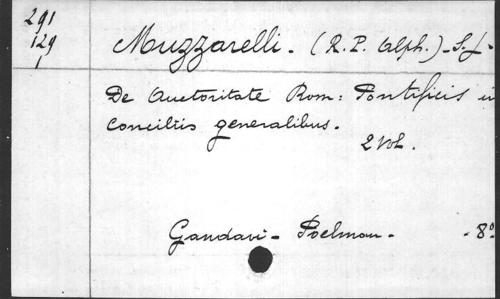 291
129
1
Muzzarelli. (R. P. Alph.) - S. J.
De Auctoritate Rom: Pontificis i
Conciliis generalibus.
2 Vol.
Gandavi - Poelman - - 8º